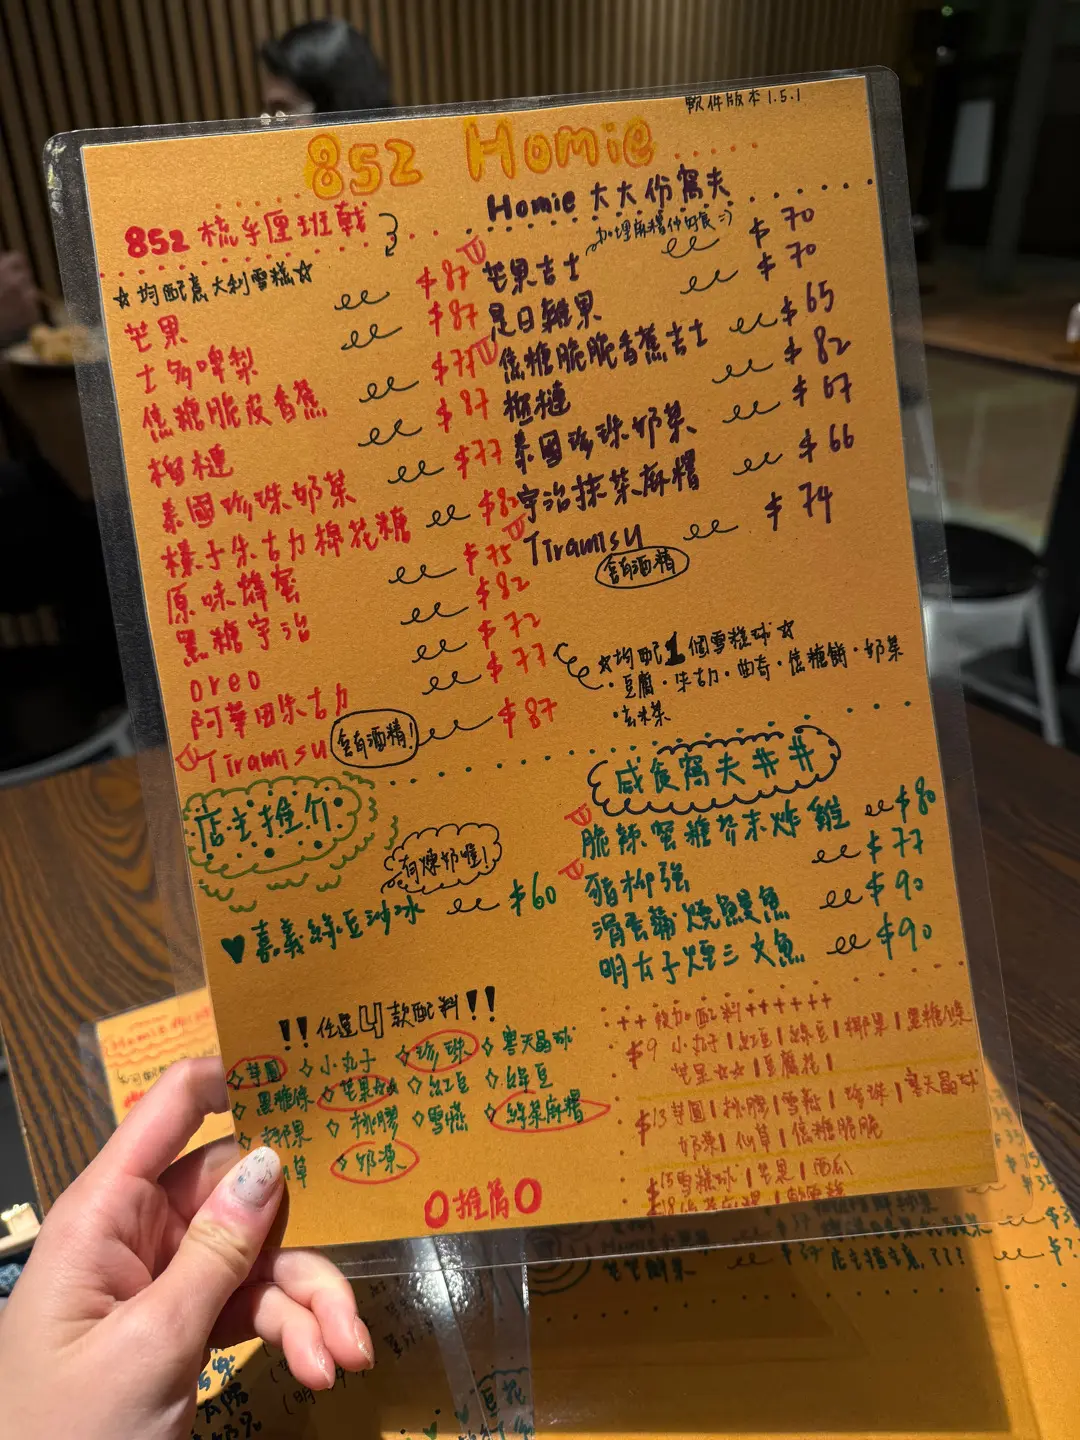 軟件版本1.5.1
852 Homie
852 梳乎厘班戟
☆均配意大利雪糕☆
芒果 $87
士多啤梨 $87
焦糖脆皮香蕉 $77
榴槤 $87
泰國珍珠奶茶 $77
榛子朱古力棉花糖 $82
原味蜂蜜 $75
黑糖宇治 $82
oreo $72
阿華田朱古力 $77
Tiramisu 含有酒精! $87
Homie 大大份窩夫
加埋麻糬仲好食=)
芒果吉士 $70
是日雜果 $70
焦糖脆脆香蕉吉士 $65
榴槤 $82
泰國珍珠奶茶 $67
宇治抹茶麻糬 $66
Tiramisu $74
含有酒精
☆均配1個雪糕球☆
·豆腐·朱古力·曲奇·焦糖餅·奶茶
·玄米茶
店主推介
有煉奶㗎!
♥嘉義綠豆沙冰 $60
咸食窩夫##
脆辣蜜糖芥末炸雞 $80
豬柳強 $77
滑蛋蒲燒鰻魚 $90
明太子煙三文魚 $90
!!任選4款配料!!
◇芋圓 ◇小丸子 ◇珍珠 ◇寒天晶球
◇黑糖條 ◇芒果☆☆ ◇紅豆 ◇綠豆
◇椰果 ◇桃膠 ◇雪燕 ◇綠茶麻糬
草 ◇奶凍
O推薦O
++後加配料++++++
$9 小丸子|紅豆|綠豆|椰果|黑糖條
芒果☆☆|豆腐花|
$13芋圓|桃膠|雪燕|珍珠|寒天晶球
奶凍|仙草|焦糖脆脆
$15雪糕球|芒果|西瓜
$18